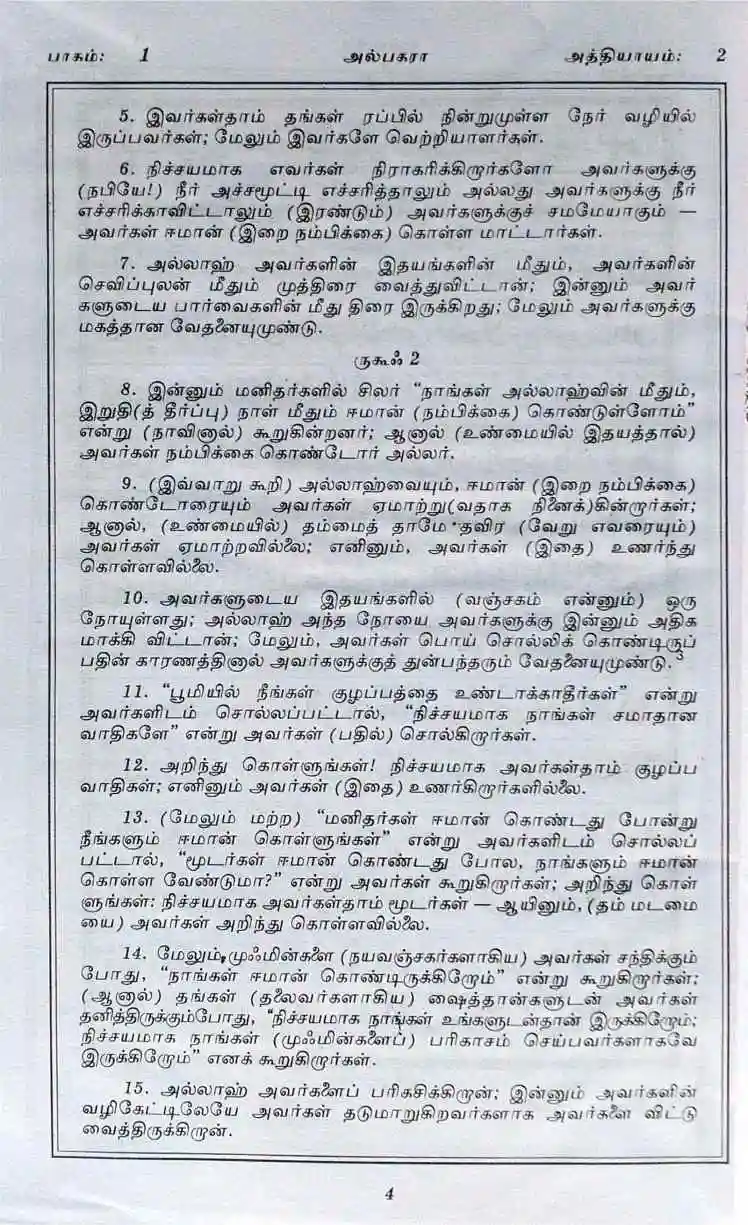 பாகம்: 1 அல்பகரா அத்தியாயம்: 2
5. இவர்கள்தாம் தங்கள் ரப்பில் நின்றுமுள்ள நேர் வழியில்
இருப்பவர்கள்; மேலும் இவர்களே வெற்றியாளர்கள்.
6. நிச்சயமாக எவர்கள் நிராகரிக்கிறார்களோ அவர்களுக்கு
(நபியே!) நீர் அச்சமூட்டி எச்சரித்தாலும் அல்லது அவர்களுக்கு நீர்
எச்சரிக்காவிட்டாலும் (இரண்டும்) அவர்களுக்குச் சமமேயாகும் —
அவர்கள் ஈமான் (இறை நம்பிக்கை) கொள்ள மாட்டார்கள்.
7. அல்லாஹ் அவர்களின் இதயங்களின் மீதும், அவர்களின்
செவிப்புலன் மீதும் முத்திரை வைத்துவிட்டான்; இன்னும் அவர்
களுடைய பார்வைகளின் மீது திரை இருக்கிறது; மேலும் அவர்களுக்கு
மகத்தான வேதனையுமுண்டு.
ருகூஃ 2
8. இன்னும் மனிதர்களில் சிலர் “நாங்கள் அல்லாஹ்வின் மீதும்,
இறுதி(த் தீர்ப்பு) நாள் மீதும் ஈமான் (நம்பிக்கை) கொண்டுள்ளோம்”
என்று (நாவினால்) கூறுகின்றனர்; ஆனால் (உண்மையில் இதயத்தால்)
அவர்கள் நம்பிக்கை கொண்டோர் அல்லர்.
9. (இவ்வாறு கூறி) அல்லாஹ்வையும், ஈமான் (இறை நம்பிக்கை)
கொண்டோரையும் அவர்கள் ஏமாற்று(வதாக நினைக்)கின்றார்கள்;
ஆனால், (உண்மையில்) தம்மைத் தாமே தவிர (வேறு எவரையும்)
அவர்கள் ஏமாற்றவில்லை; எனினும், அவர்கள் (இதை) உணர்ந்து
கொள்ளவில்லை.
10. அவர்களுடைய இதயங்களில் (வஞ்சகம் என்னும்) ஒரு
நோயுள்ளது; அல்லாஹ் அந்த நோயை அவர்களுக்கு இன்னும் அதிக
மாக்கி விட்டான்; மேலும், அவர்கள் பொய் சொல்லிக் கொண்டிருப்
பதின் காரணத்தினால் அவர்களுக்குத் துன்பந்தரும் வேதனையுமுண்டு.3
11. “பூமியில் நீங்கள் குழப்பத்தை உண்டாக்காதீர்கள்” என்று
அவர்களிடம் சொல்லப்பட்டால், “நிச்சயமாக நாங்கள் சமாதான
வாதிகளே” என்று அவர்கள் (பதில்) சொல்கிறார்கள்.
12. அறிந்து கொள்ளுங்கள்! நிச்சயமாக அவர்கள்தாம் குழப்ப
வாதிகள்; எனினும் அவர்கள் (இதை) உணர்கிறார்களில்லை.
13. (மேலும் மற்ற) “மனிதர்கள் ஈமான் கொண்டது போன்று
நீங்களும் ஈமான் கொள்ளுங்கள்” என்று அவர்களிடம் சொல்லப்
பட்டால், “மூடர்கள் ஈமான் கொண்டது போல, நாங்களும் ஈமான்
கொள்ள வேண்டுமா?” என்று அவர்கள் கூறுகிறார்கள்; அறிந்து கொள்
ளுங்கள்: நிச்சயமாக அவர்கள்தாம் மூடர்கள் — ஆயினும், (தம் மடமை
யை) அவர்கள் அறிந்து கொள்ளவில்லை.
14. மேலும், முஃமின்களை (நயவஞ்சகர்களாகிய) அவர்கள் சந்திக்கும்
போது, “நாங்கள் ஈமான் கொண்டிருக்கிறோம்” என்று கூறுகிறார்கள்;
(ஆனால்) தங்கள் (தலைவர்களாகிய) ஷைத்தான்களுடன் அவர்கள்
தனித்திருக்கும்போது, “நிச்சயமாக நாங்கள் உங்களுடன்தான் இருக்கிறோம்;
நிச்சயமாக நாங்கள் (முஃமின்களைப்) பரிகாசம் செய்பவர்களாகவே
இருக்கிறோம்” எனக் கூறுகிறார்கள்.
15. அல்லாஹ் அவர்களைப் பரிகசிக்கிறான்; இன்னும் அவர்களின்
வழிகேட்டிலேயே அவர்கள் தடுமாறுகிறவர்களாக அவர்களை விட்டு
வைத்திருக்கிறான்.
4